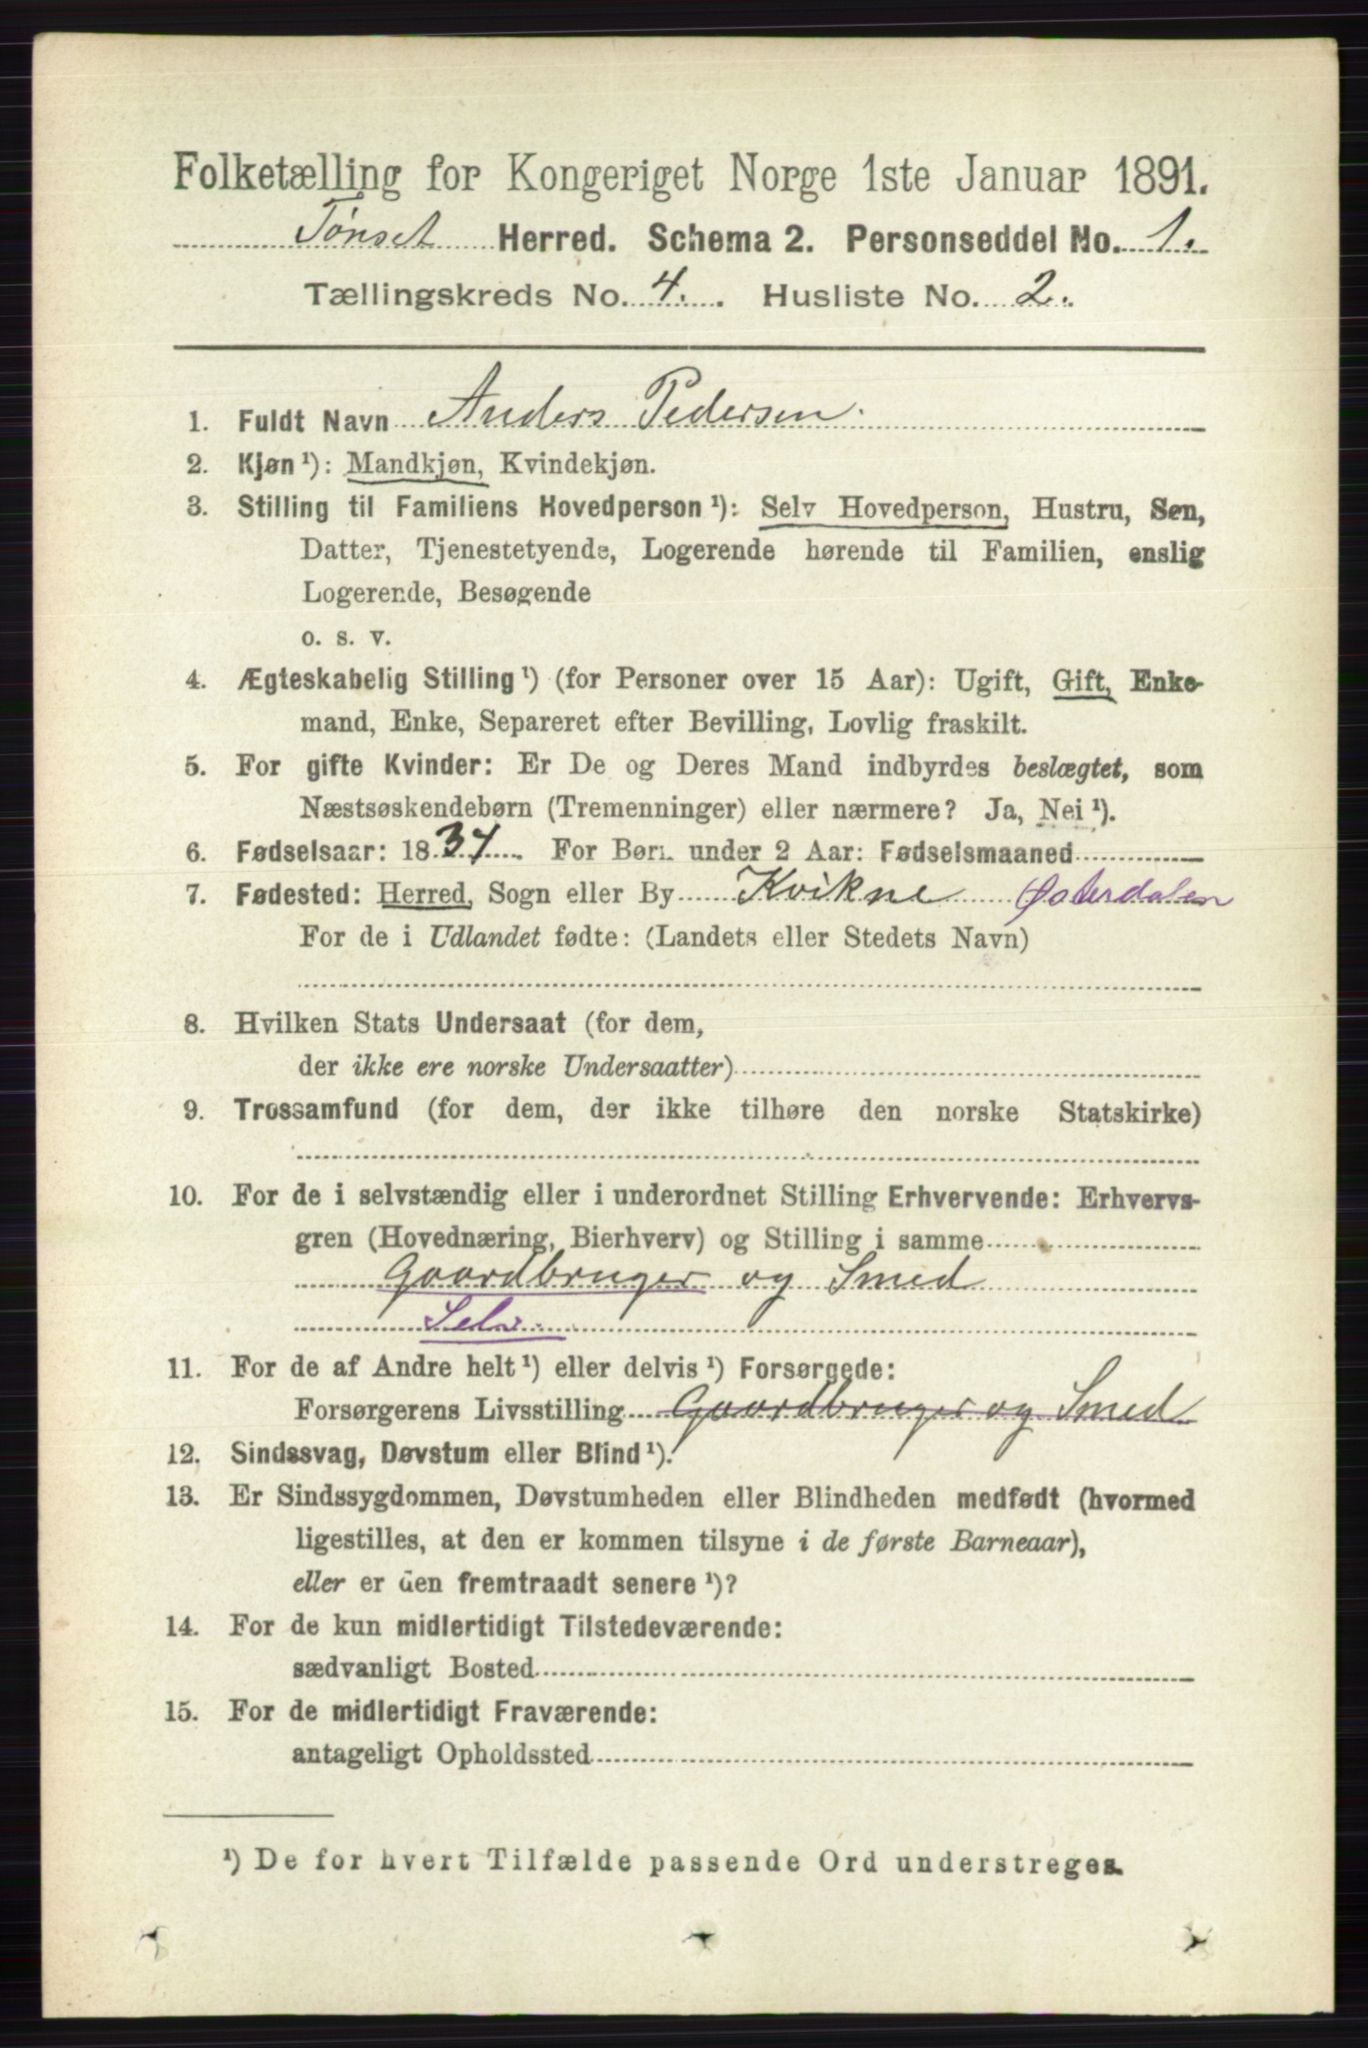 Folketælling for Kongeriget Norge 1ste Januar 1891.
Tønset Herred. Schema 2. Personseddel No. 1.
Tællingskreds No. 4. Husliste No. 2.
1. Fuldt Navn Anders Pedersen.
2. Kjøn¹): Mandkjøn, Kvindekjøn.
3. Stilling til Familiens Hovedperson¹): Selv Hovedperson, Hustru, Søn,
Datter, Tjenestetyende, Logerende hørende til Familien, enslig
Logerende, Besøgende
o. s. v.
4. Ægteskabelig Stilling¹) (for Personer over 15 Aar): Ugift, Gift, Enke-
mand, Enke, Separeret efter Bevilling, Lovlig fraskilt.
5. For gifte Kvinder: Er De og Deres Mand indbyrdes beslægtet, som
Næstsøskendebørn (Tremenninger) eller nærmere? Ja, Nei¹).
6. Fødselsaar: 1837. For Børn under 2 Aar: Fødselsmaaned
7. Fødested: Herred, Sogn eller By Kvikne Østerdalen
For de i Udlandet fødte: (Landets eller Stedets Navn)
8. Hvilken Stats Undersaat (for dem,
der ikke ere norske Undersaatter)
9. Trossamfund (for dem, der ikke tilhøre den norske Statskirke)
10. For de i selvstændig eller i underordnet Stilling Erhvervende: Erhvervs-
gren (Hovednæring, Bierhverv) og Stilling i samme
Gaardbruger og Smed
Selv.
11. For de af Andre helt¹) eller delvis¹) Forsørgede:
Forsørgerens Livsstilling Gaardbruger og Smed
12. Sindssvag, Døvstum eller Blind¹).
13. Er Sindssygdommen, Døvstumheden eller Blindheden medfødt (hvormed
ligestilles, at den er kommen tilsyne i de første Barneaar),
eller er den fremtraadt senere¹)?
14. For de kun midlertidigt Tilstedeværende:
sædvanligt Bosted
15. For de midlertidigt Fraværende:
antageligt Opholdssted
¹) De for hvert Tilfælde passende Ord understreges.